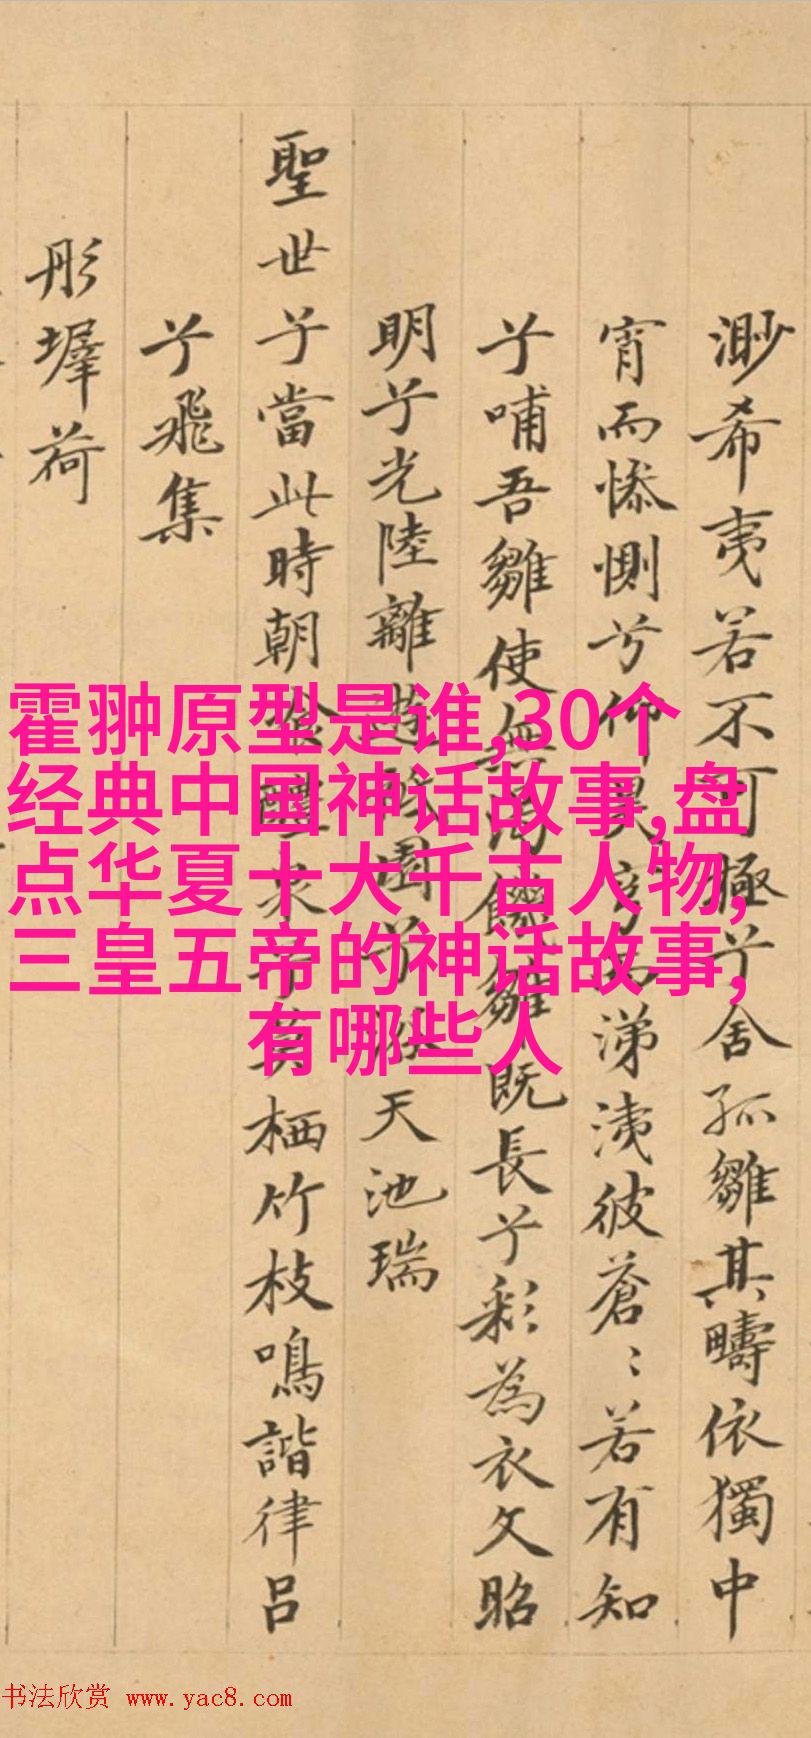 渺希夷若不可極兮舍孤雛其疇依獨中
宵而惨惻兮仰昊穹而涕洟彼蒼〻若有知
兮哺吾雛使無萬饑雛既長兮彩為衣文昭
明兮光陸離遊
園兮
天池瑞
聖世兮當此時朝
來兮莫栖竹枝鳴諧律呂
兮飛集
彤墀荷
霍翀原型是谁,30个
经典中国神话故事,盘
点华夏十大千古人物,
三皇五帝的神话故事,
有哪些人
书法欣赏 www.yac8.com